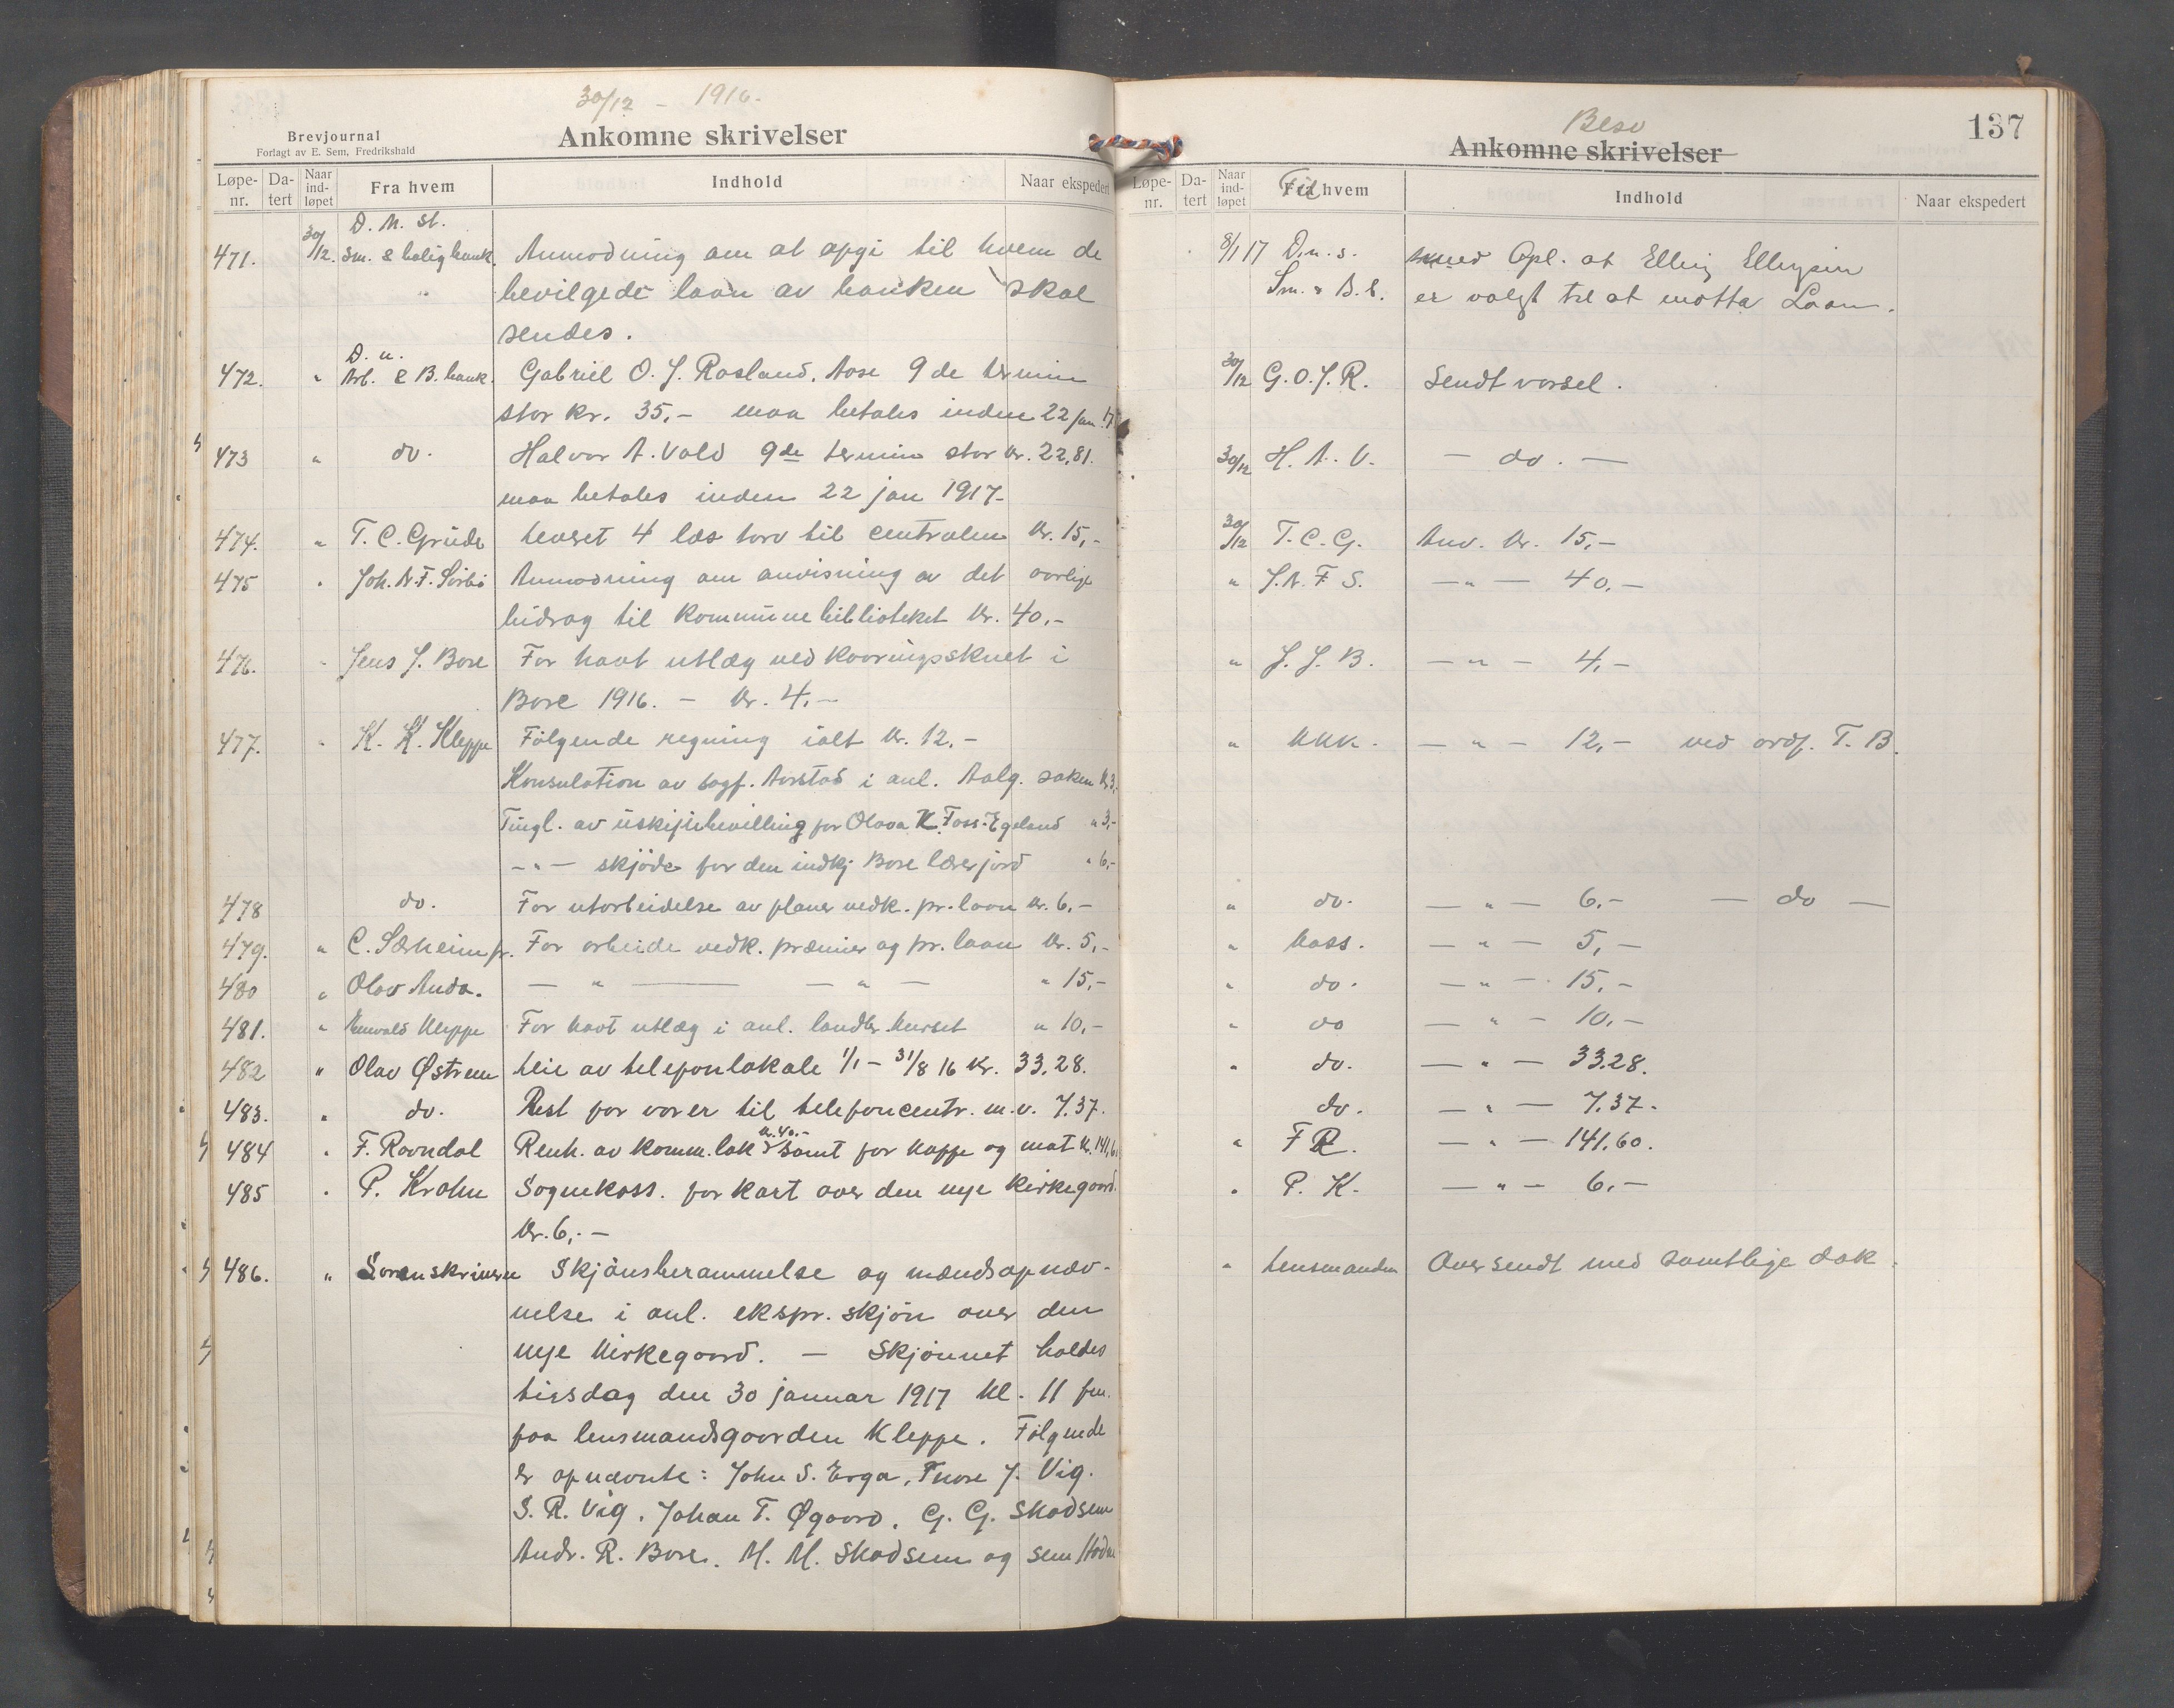 30/12 - 1916.
Brevjournal
Forlagt av E. Sem, Fredrikshald
Ankomne skrivelser
Løpe-nr. Da-tert Naar ind-løpet Fra hvem Indhold Naar ekspedert
D. N. St.
471. 30/12. Sm. & bolig bank. Anmodning om at opgi til hvem de
" bevilgede laan av banken skal
sendes.
D. n.
472. " Arb. & B. bank. Gabriel O. J. Rosland. Aase 9de termin
stor kr. 35,- maa betales inden 22 jan. 17
473 " do. Halvor A. Vold 9de termin stor kr. 22,81.
maa betales inden 22 jan 1917-
474. " T. C. Grude Leveret 4 læs torv til centralen kr. 15,-
475 " Joh. A. F. Sörbö Anmodning om anvisning av det aarlige
bidrag til kommunebiblioteket kr. 40.-
476. " Jens J. Bore For havt utlæg ved kaaringsskuet i
Bore 1916. - kr. 4,-
477. " K. K. Kleppe Fölgende regning ialt kr. 12,-
Konsulation av sagf. Aarstad i anl. Aalg. saken kr 3,
Tingl. av uskiftebevilling for Olava K. Foss-Egeland " 3,-
- " - skjöde for den indkj Bore lærerjord " 6,-
478 do. For utarbeidelse av planer vedk. pr. laan kr. 6,-
479. " C. Særheim jr. For arbeide vedk. præmier og pr. laan kr. 5,-
480 " Olav Anda. - " - - " - " 15,-
481. " Kleppe For havt utlæg i anl. landbr. kurset " 10,-
482 " Olav Østrem Leie av telefonlokale 1/1 - 31/8 16 kr. 33.28.
483. " do. Rest for varer til telefoncentr. m.v. 7.37.
kr. 40.-
484 " F. Ravndal Renh. av komm. lok samt for kaffe og mat kr. 141,6
485 " P. Krohn Sognekass. for kart over den nye kirkegaard.
kr. 6,-
486. " Sorenskriveren Skjönsberammelse og mændsopnæv-
nelse i anl. ekspr. skjön over den
nye kirkegaard. - Skjönnet holdes
tirsdag den 30 januar 1917 kl. 11 fm.
paa lensmandsgaarden Kleppe. Fölgende
er opnævnte: John S. Erga, Tore J. Vig.
S. R. Vig. Johan T. Øgaard. G. G. Skadsem
Andr. R. Bore. M. M. Skadsem og Sem Hodne
137
Besv
Ankomne skrivelser
Løpe-nr. Da-tert Naar ind-løpet Til hvem Indhold Naar ekspedert
8/1 17 D. n. s. med Opl. at Elling Ellingsen
Sm. & B. b. er valgt til at motta Laan.
30/12 G. O. J. R. Sendt varsel.
30/12 H. A. V. - do. -
30/12 T. C. G. Anv. kr. 15,-
" J. A. F. S. - " - 40.-
" J. J. B. - " - 4,-
" KKK. - " - 12,- ved ordf. T. B.
" do. - " - 6.- - do -
" kass. - " - 5,-
" do. - " - 15,-
" do - " - 10,-
" do. - " - 33.28.
do. - " - 7.37.
" F R. - " - 141.60.
" P. K. - " - 6.-
" Lensmanden Oversendt med samtlige dok.